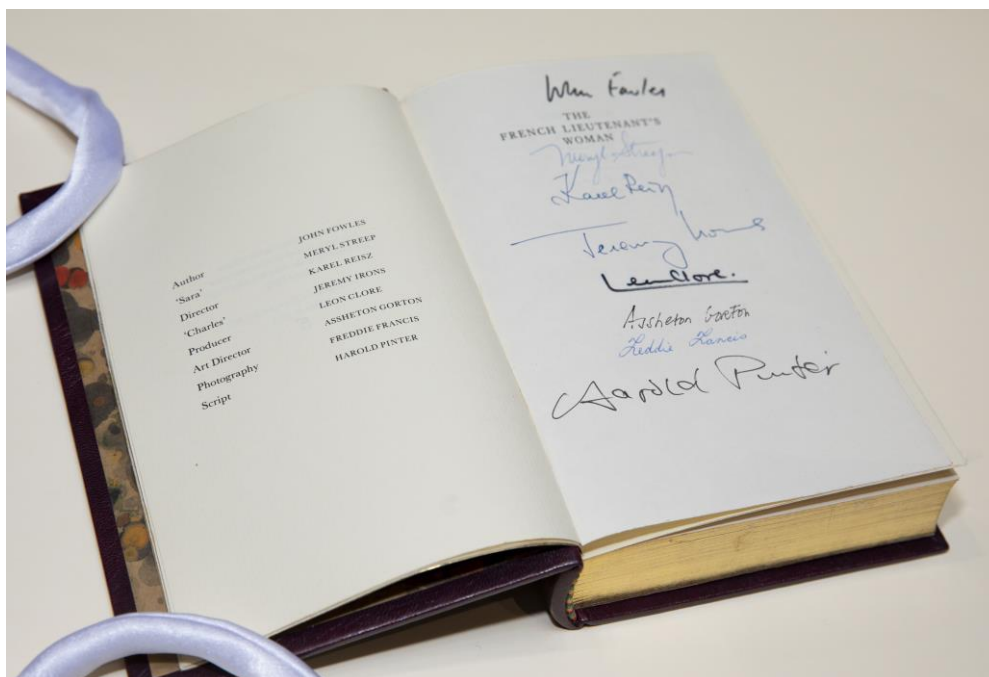 Author JOHN FOWLES
'Sara' MERYL STREEP
Director KAREL REISZ
'Charles' JEREMY IRONS
Producer LEON CLORE
Art Director ASSHETON GORTON
Photography FREDDIE FRANCIS
Script HAROLD PINTER
John Fowles
THE
FRENCH LIEUTENANT'S
WOMAN
Meryl Streep
Karel Reisz
Jeremy Irons
Leon Clore.
Assheton Gorton
Freddie Francis
Harold Pinter